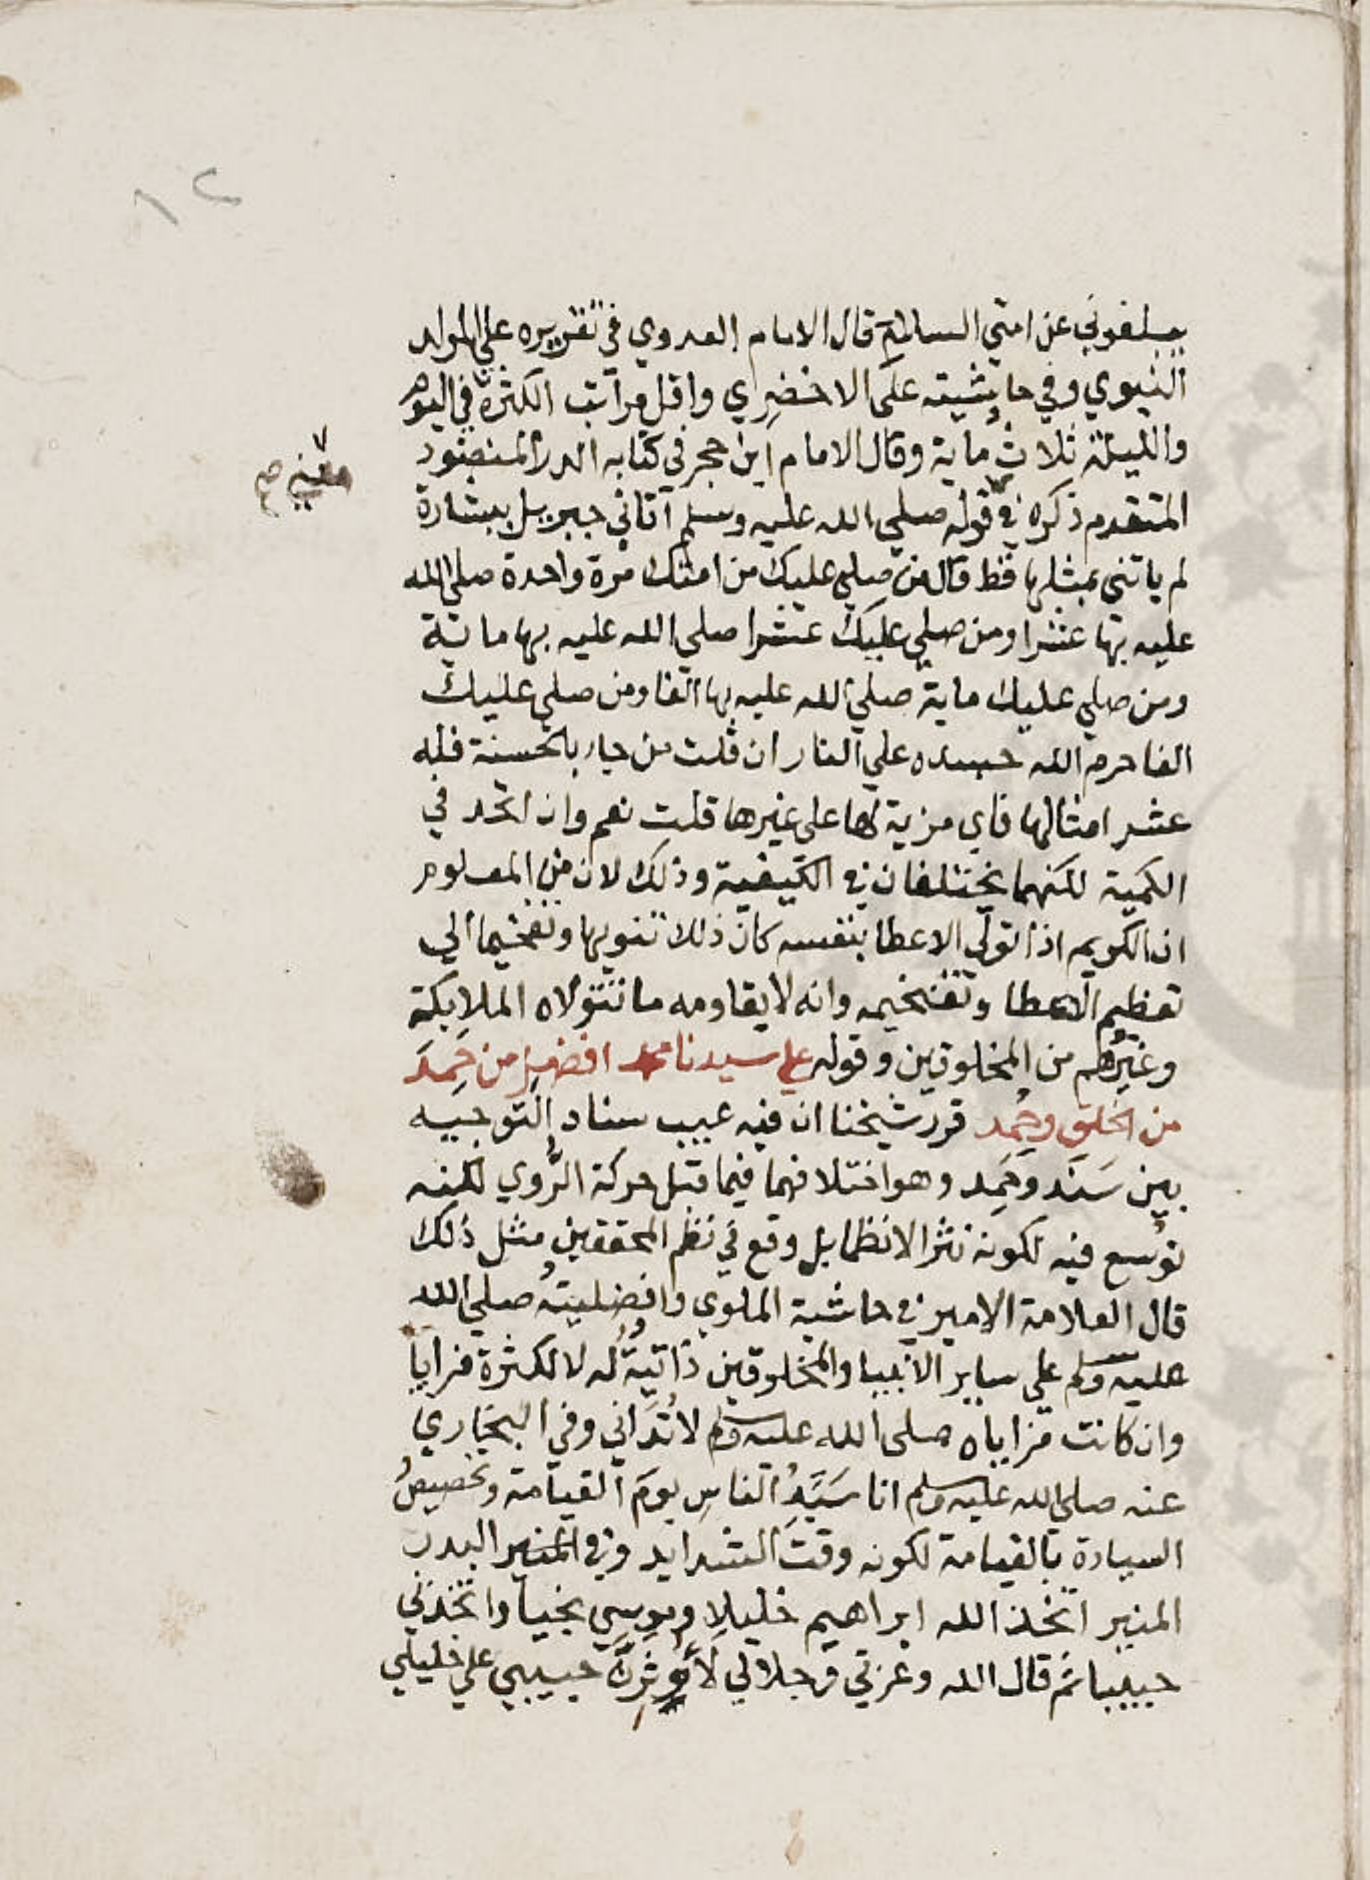 ١٢
يبلغوني عن امتي السلام قال الامام العدوي في تقريره علي المولد
النبوي وفي حاشيته علي الاخضري واقل مراتب الكثرة في اليوم
والليلة ثلاث ماية وقال الامام ابن حجر في كتابه الدر المنضود
المتقدم ذكره في قوله صلي الله عليه وسلم أتاني جبريل ببشارة
لم ياتني بمثلها قط قال من صلي عليك من امتك مرة واحدة صلي الله
عليه بها عشرا ومن صلي عليك عشرا صلي الله عليه بها مائة
ومن صلي عليك ماية صلي الله عليه بها الفا ومن صلي عليك
الفا حرم الله جسده علي النار ان قلت من جاء بالحسنة فله
عشر امثالها فاي مزية لها علي غيرها قلت نعم وان اتحد في
الكمية لكنهما يختلفان في الكيفية وذلك لان من المعلوم
ان الكريم اذا تولي الاعطا بنفسه كان ذلك تنويها وتفخيما الي
تعظيم الاعطا وتفخيمه وانه لا يقاومه ما تتولاه الملايكة
وغيرُهم من المخلوقين وقوله علي سيدنا محمد افضل من حَمِدَ
من الخلق وحُمِد قرر شيخنا ان فيه عيب سناد التوجيه
بين سَنَد وحَمِد وهو اختلافهما فيما قبل حركة الرَّوي لكنه
تُوُسع فيه لكونه نثرا لانظما بل وقع في نظم المحققين مثل ذلك
قال العلامة الامير في حاشية الملوي وافضليتُه صلي الله
عليه وسلم علي ساير الانبيا والمخلوقين ذاتيةٌ له لا لكثرة مزايا
وان كانت مزاياه صلي الله عليه وسلم لا تُدَاني وفي البخاري
عنه صلي الله عليه وسلم انا سَيِّدُ الناسِ يومَ القيامة وتخصيصُ
السيادة بالقيامة لكونه وقتَ الشدايد وفي المنير البدر
المنير اتخذ الله ابراهيم خليلا وموسي نجيا واتخذني
حبيبا ثم قال الله وعزتي وجلالي لَأُوثِرَنَّ حبيبي علي خليلي